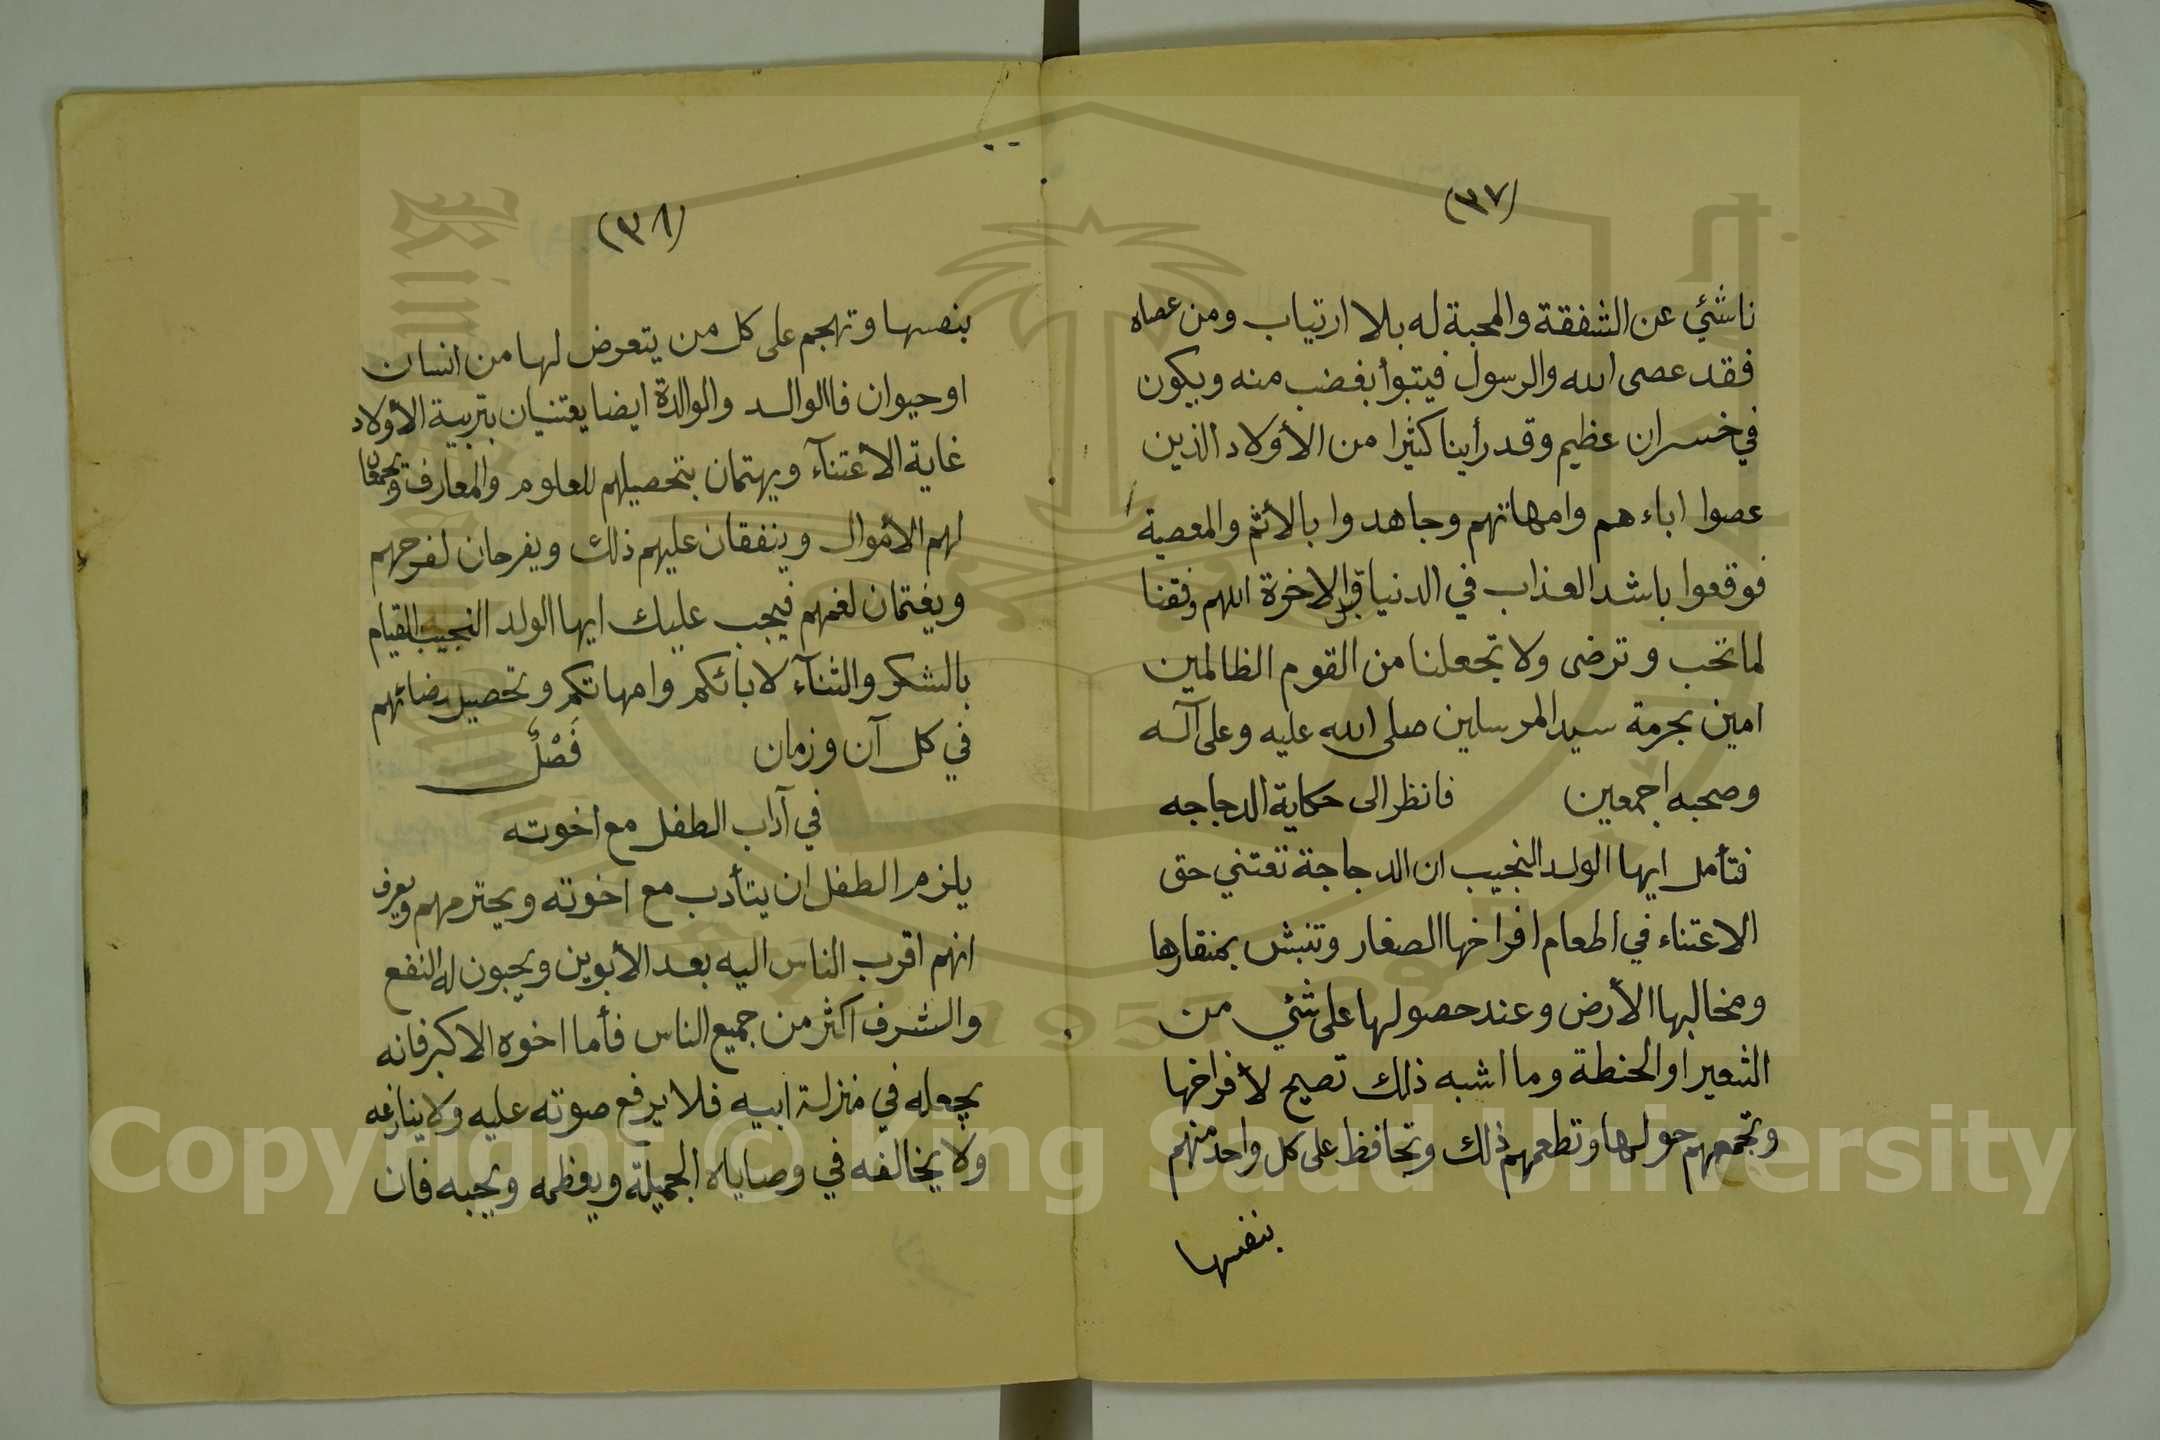 (٣٧)
ناشئي عن الشفقة والمحبة له بلا ارتياب ومن عصاه
فقد عصى الله والرسول فيتبوأ بغضب منه ويكون
في خسران عظيم وقد رأينا كثيرا من الأولاد الذين
عصوا اباءهم وامهاتهم وجاهدوا بالأثم والمعصية
فوقعوا باشد العذاب في الدنيا والاخرة اللهم وفقنا
لما تحب وترضى ولا تجعلنا من القوم الظالمين
امين بحرمة سيد المرسلين صلى الله عليه وعلى آله
وصحبه اجمعين فانظر الى حكاية الدجاجه
فتأمل ايها الولد النجيب ان الدجاجة تعتني حق
الاعتناء في اطعام افراخها الصغار وتنبش بمنقارها
ومخالبها الأرض وعند حصولها على شئي من
الشعير او الحنطة وما اشبه ذلك تصيح لأفراخها
وتجمعهم حولها وتطعمهم ذلك وتحافظ على كل واحد منهم
بنفسها
(٣٨)
بنفسها وتهجم على كل من يتعرض لها من انسان
او حيوان فاالوالد والوالدة ايضا يعتنيان بتربية الأولاد
غاية الأعتنآء ويهتمان بتحصيلهم للعلوم والمعارف ويجمعان
لهم الأموال وينفقان عليهم ذلك ويفرحان لفرحهم
ويغتمان لغمهم فيجب عليك ايها الولد النجيب القيام
بالشكر والثنآء لابائكم وامهاتكم وتحصيل رضائهم
في كل آن وزمان فَصْلٌ
في آداب الطفل مع اخوته
يلزم الطفل ان يتأدب مع اخوته ويحترمهم ويعرف
انهم اقرب الناس اليه بعد الأبوين ويحبون له النفع
والشرف اكثر من جميع الناس فأما اخوه الاكبر فانه
يجعله في منزلة ابيه فلا يرفع صوته عليه ولا ينازعه
ولا يخالفه في وصاياه الجميلة ويعظمه ويحبه فان
Copyright © King Saud University
1957